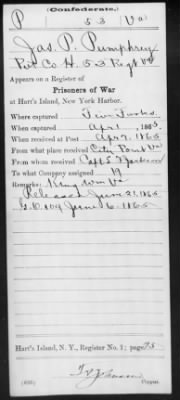 (Confederate.)
P 53 Va
Jas. P. Pumphrey
Pvt Co. H. 53 Regt Va
Appears on a Register of
Prisoners of War
at Hart's Island, New York Harbor.
Where captured Five Forks
When captured Apr 1, 1865.
When received at Post Apr 7, 1865
From what place received City Point Va
From whom received Capt S
To what company assigned 19
Remarks: Va
Released June 21, 1865
G.O. 109 June 6-1865
Hart's Island, N. Y., Register No. 1; page 75
Copyist.